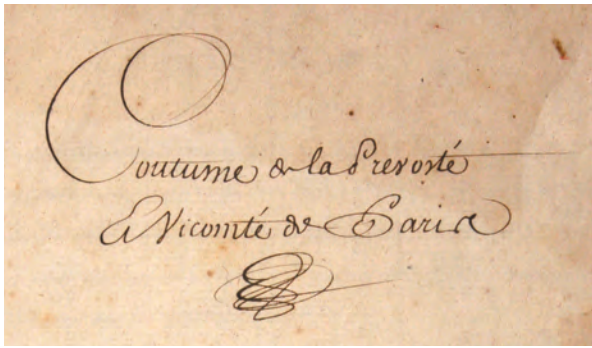 Coutume de la Prevosté
Et Vicomté de Paris